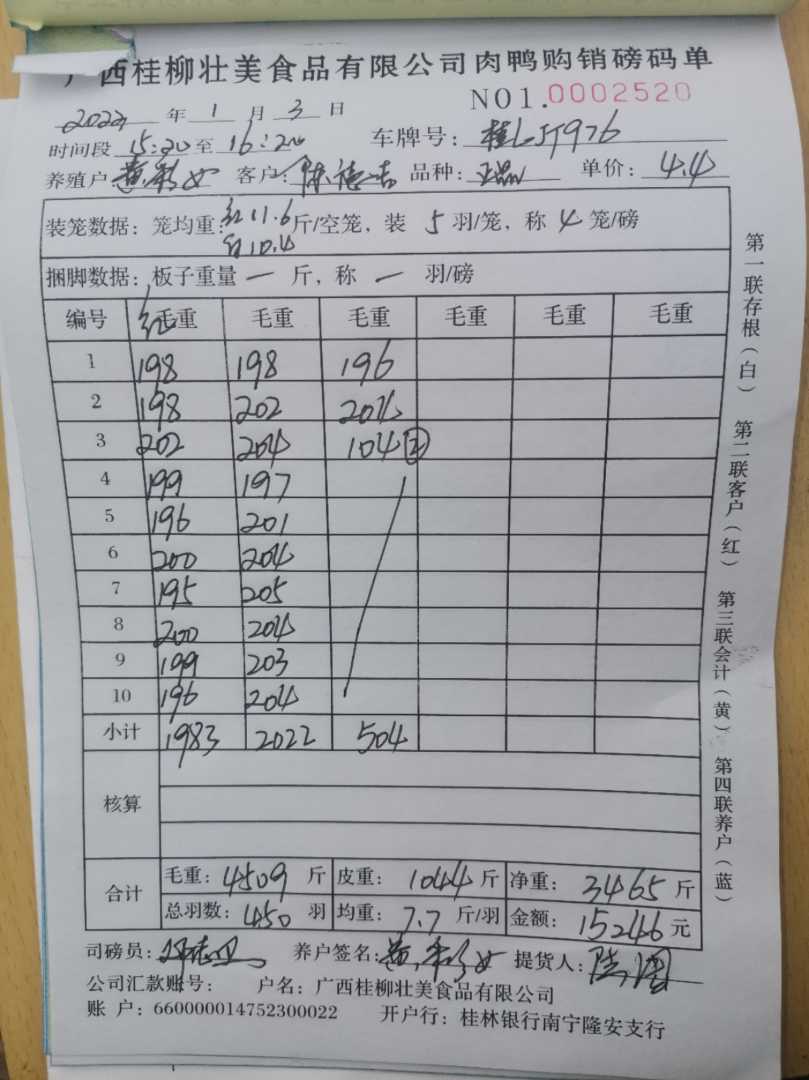 广西桂柳壮美食品有限公司肉鸭购销磅码单
NO1.0002520
2022年1月3日
时间段 15:20至16:20 车牌号: 桂LJT976
养殖户: 客户: 品种: 正品 单价: 4.4
装笼数据: 笼均重: 红11.6 斤/空笼, 装5羽/笼, 称4笼/磅
白10.4
捆脚数据: 板子重量 一 斤, 称 一 羽/磅
编号 红毛重 毛重 毛重 毛重 毛重 毛重
1 198 198 196
2 198 202 204
3 202 204 104②
4 199 197
5 196 201
6 200 204
7 195 205
8 200 204
9 199 203
10 196 204
小计 1983 2022 504
核算
合计 毛重: 4509 斤 皮重: 1044 斤 净重: 3465 斤
总羽数: 450 羽 均重: 7.7 斤/羽 金额: 15246 元
司磅员: 养户签名: 提货人:
公司汇款账号: 户名: 广西桂柳壮美食品有限公司
账 户: 660000014752300022 开户行: 桂林银行南宁隆安支行
第一联存根(白) 第二联客户(红) 第三联会计(黄) 第四联养户(蓝)